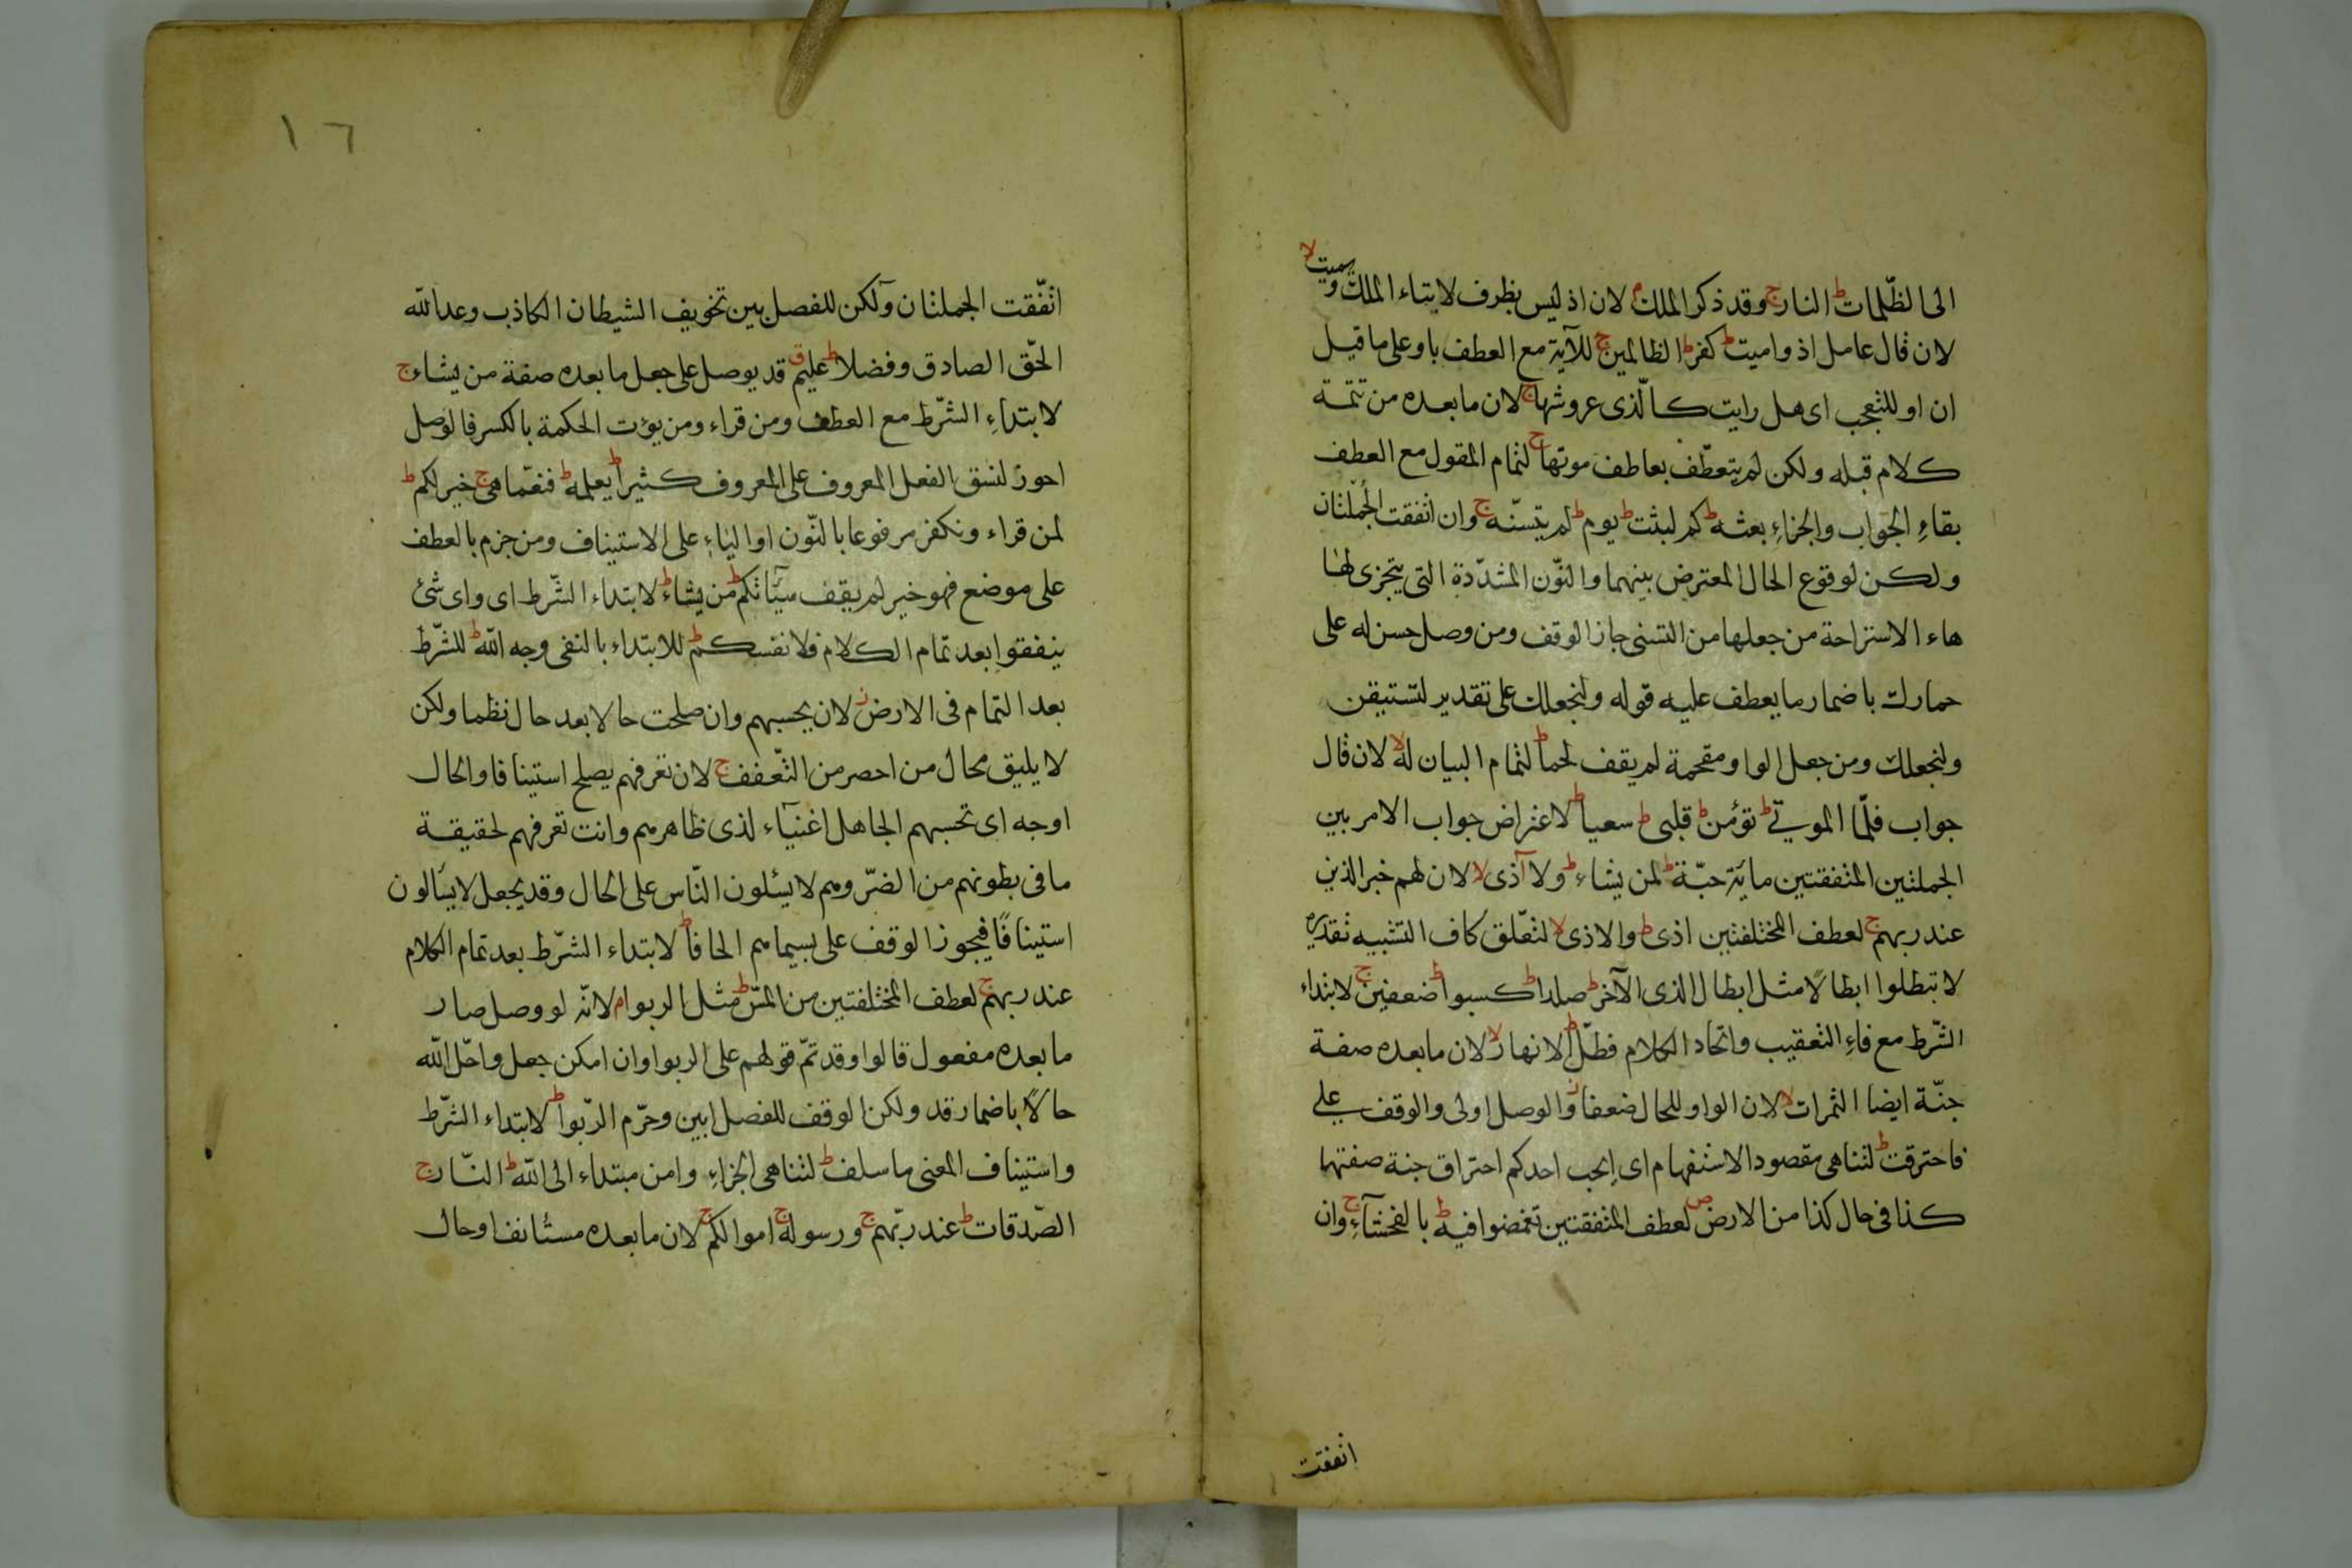 الى الظّلمات ط النار ج وقد ذكر الملك م لان اذ ليس بظرف لايتاء الملك ويميت لا
لان قال عامل اذ واميت ط كفر ط الظالمين ج للآية مع العطف باو على ما قيل
ان او للتعجب اى هل رايت كالّذى عروشها ج لان ما بعده من تتمة
كلام قبله ولكن لم يتعطّف بعاطف موتها ج لتمام المقول مع العطف
بقاءِ الجواب والجزاءِ بعثه ط كم لبثت ط يوم ط لم يتسنّه ج وان اتفقت الجملتان
ولكن لوقوع الحال المعترض بينهما والنّون المشدّدة التى يتجزى لها
هاء الاستراحة من جعلها من التسنى جاز الوقف ومن وصل حسن له على
حمارك باضمار ما يعطف عليه قوله ولنجعلك على تقدير لتستيقن
ولنجعلك ومن جعل الواو مقحمة لم يقف لحما ط لتمام البيان له لا لان قال
جواب فلمّا الموتى ط تؤمن ط قلبى ط سعيا ط لاعتراض جواب الامر بين
الجملتين المتفقتين مائة حبّة ط لمن يشاء ط ولا آذى لا لان لهم خبر الذين
عند ربهم ج لعطف المختلفتين اذى ط والاذى لا لتعّلق كاف التشبيه تقديره
لا تبطلوا ابطالًا مثل ابطال الذى الآخر ط صلدا ط كسبوا ط ضعفين ج لابتداء
الشّرط مع فاءِ التعقيب واتحاد الكلام فطلّ ط الانهار لا لان ما بعده صفة
جنّة ايضا الثمرات لا لان الواو للحال ضعفا ز والوصل اولى والوقف على
فاحترقت ط لتناهى مقصود الاستفهام اى ايحب احدكم احتراق جنة صفتها
كذا فى حال كذا من الارض ص لعطف المتفقتين تغمضوا فيه ط بالفحشآءِ ج وان
اتفقت
١٦
اتّفقت الجملتان ولكن للفصل بين تخويف الشيطان الكاذب وعد الله
الحّق الصادق وفضلا ط عليم ق قد يوصل على جعل ما بعده صفة من يشاء ج
لابتداءِ الشّرط مع العطف ومن قراء ومن يؤت الحكمة بالكسر فالوصل
اجوز لنسق الفعل المعروف على المعروف كثيرا ط يعلمه ط فنعّما هى ج خير لكم ط
لمن قراء ونكفر مرفوعا بالنّون او الياءِ على الاستيناف ومن جزم بالعطف
على موضع فهو خير لم يقف سيّآتكم ط من يشاء ط لابتداء الشّرط اى واى شئ
ينفقوا بعد تمام الكلام فلانفسكم ط للابتداء بالنفى وجه الله ط للشّرط
بعد التمام فى الارض ز لان يحسبهم وان صلحت حالا بعد حال نظما ولكن
لا يليق بحال من احصر من التّعفف ج لان تعرفهم يصلح استينافا والحال
اوجه اى تحسبهم الجاهل اغنيآء لذى ظاهرهم وانت تعرفهم لحقيقة
ما فى بطونهم من الضرّ وهم لا يسئلون النّاس على الحال وقد يجعل لا يسألون
استينافًا فيجوز الوقف على بسيماهم الحافا ط لابتداء الشّرط بعد تمام الكلام
عند ربهم ج لعطف المختلفتين من المسّ ط مثل الربوا م لانّه لو وصل صار
ما بعده مفعول قالوا وقد تمّ قولهم على الربوا وان امكن جعل واحّل الله
حالًا باضمار قد ولكن الوقف للفصل ابين وحرّم الرّبوا ط لابتداء الشّرط
واستيناف المعنى ما سلف ط لتناهى الجزاءِ وامن مبتداء الى الله ط النّار ج
الصّدقات ط عند ربّهم ج ورسوله ج اموالكم ج لان ما بعده مستانفا وحال